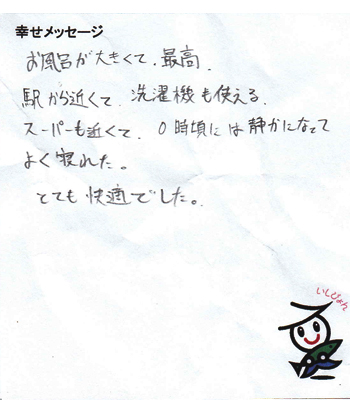 幸せメッセージ
お風呂が大きくて、最高.
駅から近くて、洗濯機も使える.
スーパーも近くて、0時頃には静かになって
よく寝れた。
とても快適でした。
いしぴょん